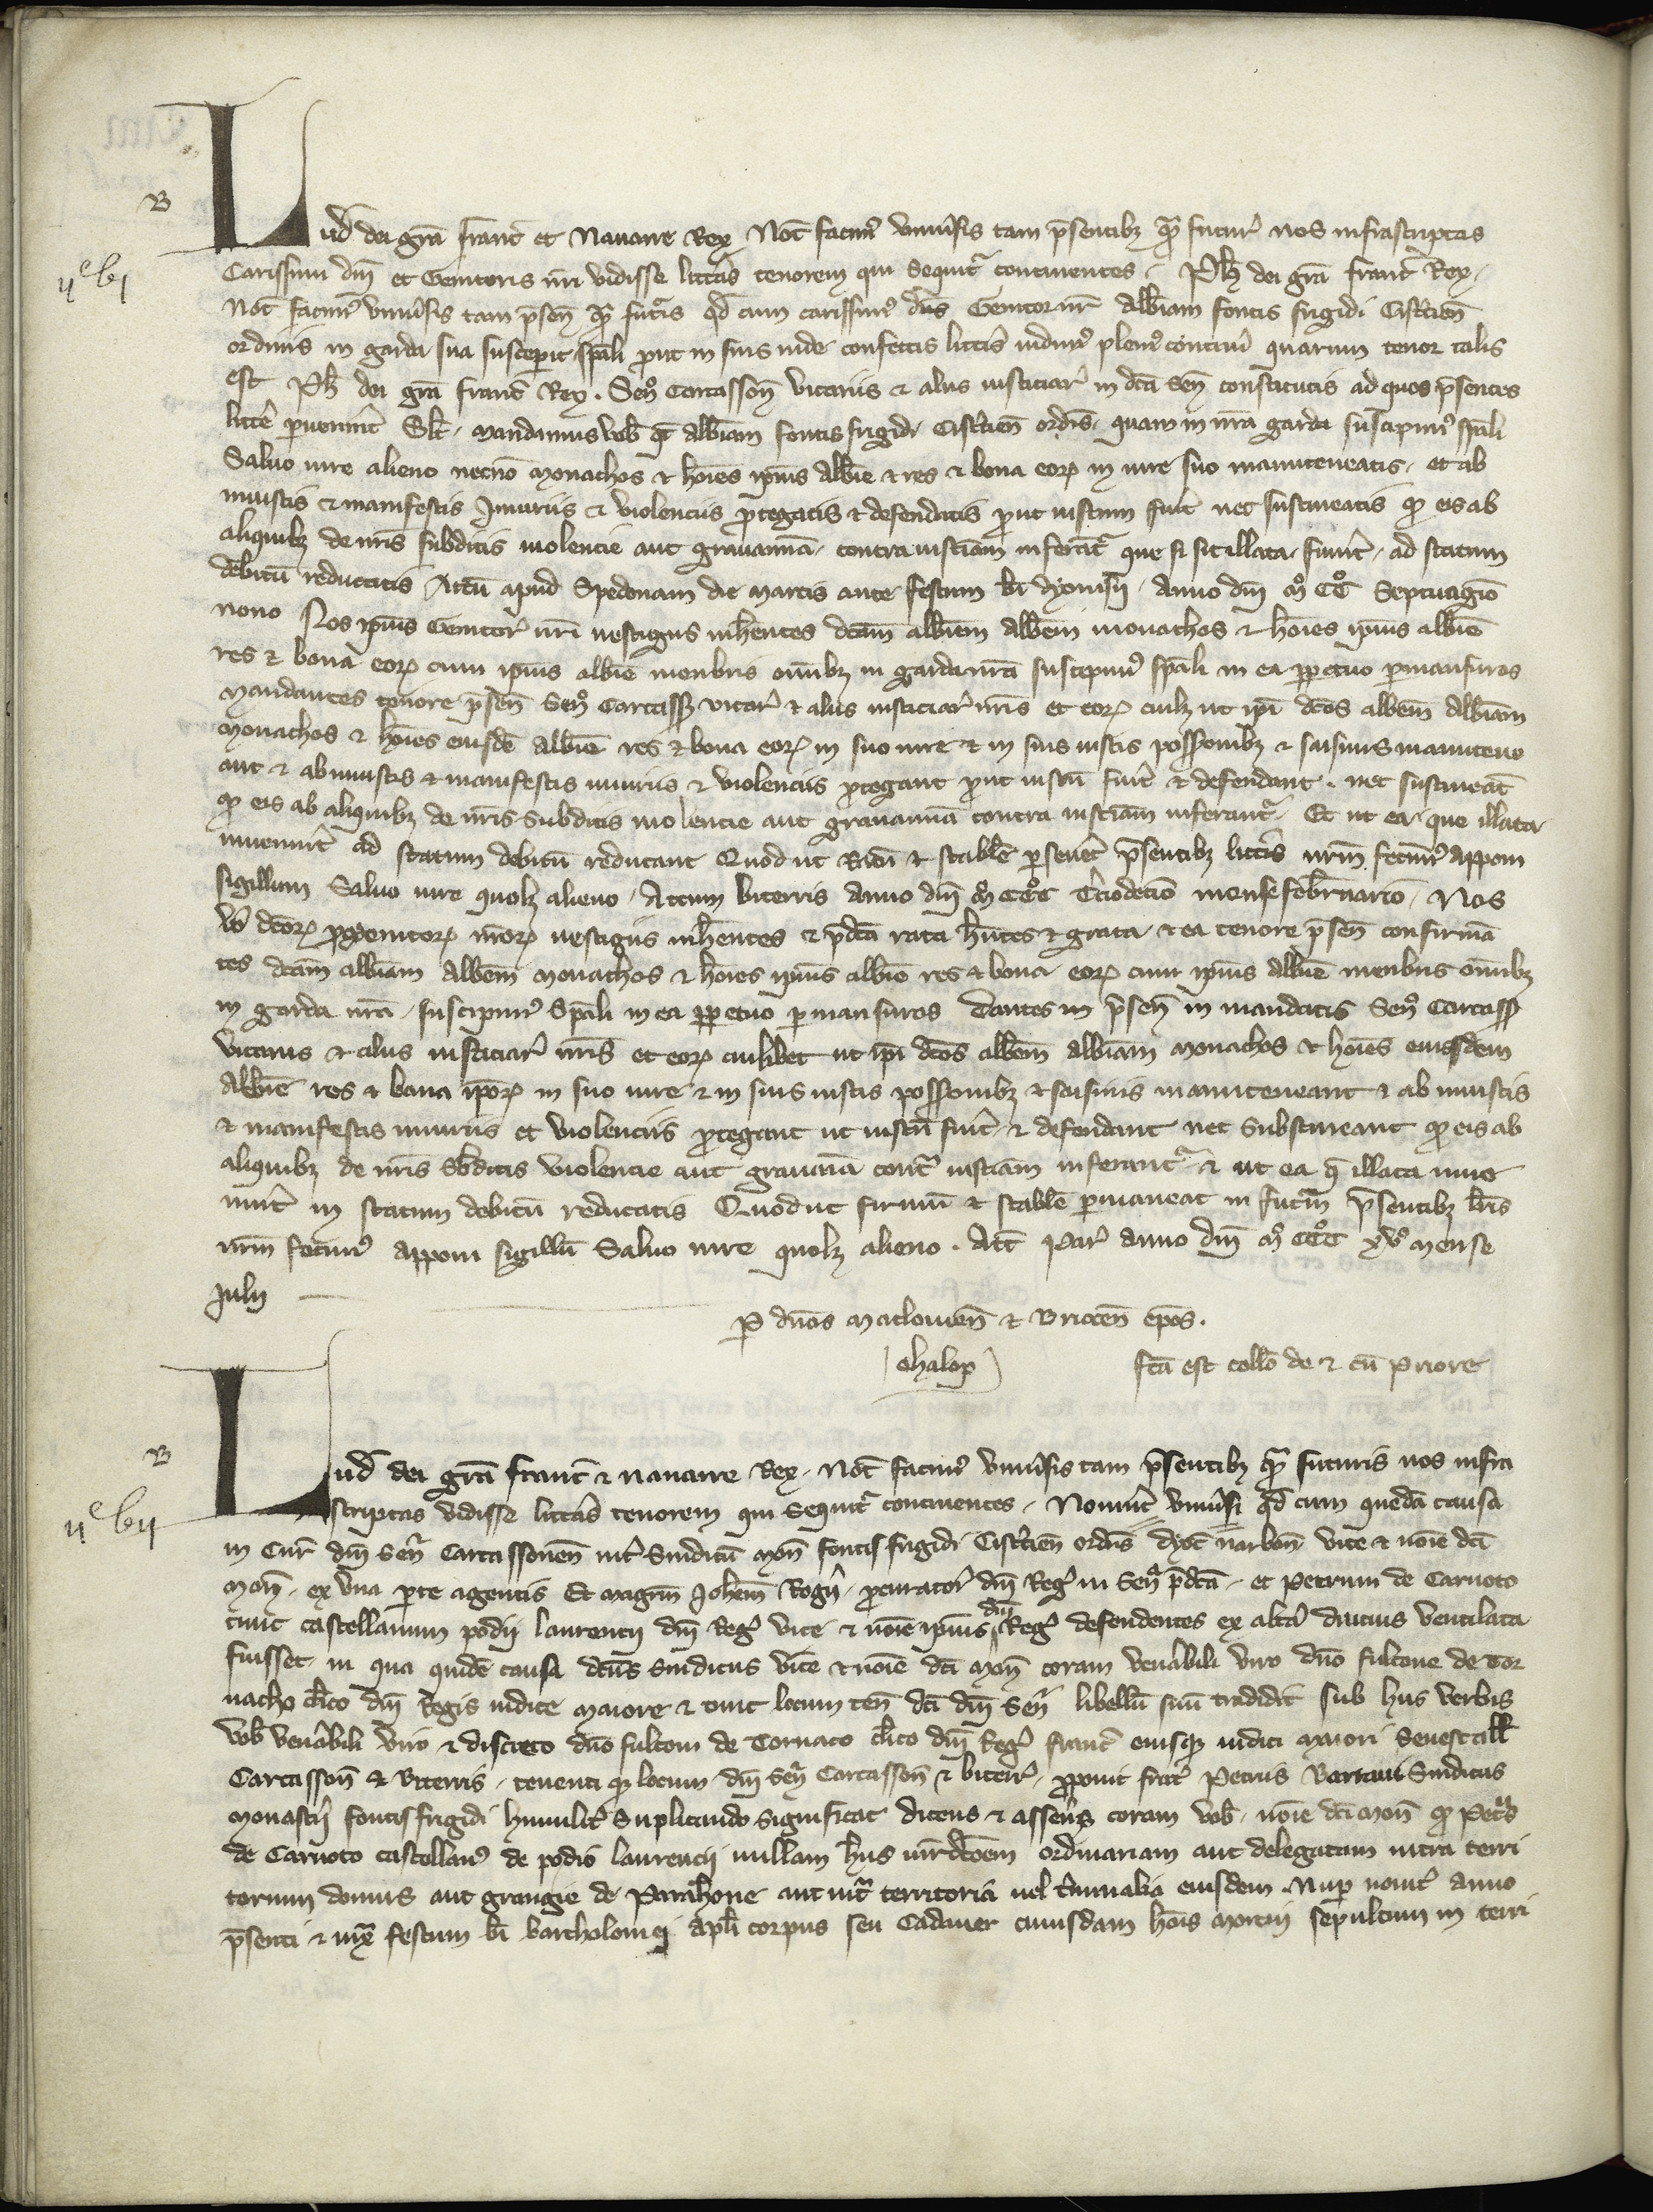 B
Lud dei gra Franc et Navarre Rex Not facim universis tam psentibz qua futur nos infrascriptas
ii e lvi
Carissimi dni et Genitoris nri vidisse litteras tenorem qui sequitr continentes. Ph dei gra Franc Rex.
Not facim universis tam psen qua futuris qd cum carissim dns Genitor nr abbiam fontis frigidi Cistercien
ordinis in garda sua susceperit spali prout in suis inde confectis litteris vidim pleni contineri quarum tenor talis
est Ph dei gra Franc Rex. Sen Carcasson vicariis et aliis iusticiar in dca sen constitutis ad quos psentes
littere pvenerint Salt. Mandamus vob qt abbiam fontis frigidi Cistercien ordis. quam in nra garda suscepim spali
Salvo iure alieno necno monachos et hoies ipius abbie et res et bona eor in iure suo manuteneatis. et ab
iniustis et manifestis iniuriis et violenciis ptegatis et defendatis pout iustum fuit nec sustineatis qd eis ab
aliquibz de nris subditis violencie aut gravamina contra iusticiam inferatr que si sic illata fuerint. ad statum
debitu reducatis Actu apud Spedonam die martis ante festum bi dyonisii. Anno dni Mo CCo Septuagio
nono Nos ipius Genitor nri vestigiis inherentes dcam abbiam abbem monachos et hoies ipius abbie
res et bona eor cum ipius abbie menbris omibz in garda nra suscepim spali in ea ppetuo pmansuros
Mandantes tenore psen Sen Carcass vicar et aliis iusticiar nris et eor cuilz ut ipi dcos abbem abbiam
monachos et hoies eiusde abbie res et bona eor in suo iure et in suis iustis possessionibz et saisinis manutene
ant et ab iniustis et manifestis iniuriis et violenciis ptegant pout iustu fuit et defendant. nec sustineat
qd eis ab aliquibz de nris subditis violencie aut gravamina contra iusticiam inferantr. Et ut ea que illata
invenerint ad statum debitu reducant Quod ut ratu et stabile pseveret psentibz litteris nrm fecim apponi
sigillum Salvo iure quolz alieno. Actum biterris anno dni Mo CCCo Terciodecimo mense februario. Nos
vo dcor pgenitor nror vestigiis inherentes et pdca rata hentes et grata. et ea tenore psen confirman
tes dcam abbiam abbem monachos et hoies ipius abbie res et bona eor cum ipius abbie menbris omibz
in garda nra suscepim spali in ea ppetuo pmansuros Dantes in psen in mandatis Sen Carcass
vicariis et aliis iusticiar nris et eor cuilibet ut ipi dcos abbem abbiam monachos et hoies eiusdem
abbie res et bona ipor in suo iure et in suis iustis possessionibz et saisinis manuteneant et ab iniustis
et manifestis iniuriis et violenciis ptegant ut iustu fuit et defendant nec substineant qd eis ab
aliquibz de nris sbditis violencie aut gravamina contra iusticiam inferantr et ut ea q illata inve
nerint in statum debitu reducatis Quod ut firmu et stabile pmaneat in futurm psentibz lris
nrm fecim apponi sigillu Salvo iure quolz alieno. Act Par anno dni Mo CCCo XVo mense
Julii
P dnos Maclovien et Briocen epos.
Chalop fca est collo de et cu priore
B
Lud dei gra Franc et Navarre Rex. Not facim universis tam psentibz qua futuris nos infra
ii e lvii
scriptas vidisse litteras tenorem qui sequitr continentes. Noverint universi qd cum queda causa
in Cur dni Sen Carcassonen inter Sindicu mon fontis frigidi Cistercien ordinis dyoc narbon vice et noie dci
mon. ex una pte agentis Et magrm Johem Rogi. pcurator dni Reg in Sen pdca. et Petrum de Carnoto
tunc castellanum podii laurencii dni Reg vice et noie ipius dni Reg defendentes ex altera diucius ventilata
fuisset. in qua quide causa dcus sindicus vice et noie dci mon coram venerabili viro dno fulcone de Tor
nacho clico dni Regis iudice maiore et tunc locum ten dci dni Sen libellu suu tradidit sub hiis verbis
Vob venerabili viro et discreto dno fulconi de Tornaco clico dni Reg Franc eiusqz iudici maiori Senescall
Carcasson et Biterris. tenenti qz locum dni Sen Carcasson et biterr. pponit frater Petrus Sindicus
monasterii fontis frigidi humiliter suplicando significat dicens et asserens coram vob. noie dci mon qd Petrs
de Carnoto castellan de podio laurencii nullam hns iurdictioem ordinariam aut delegatam intra terri
torium domus aut grangie de aut intra territoria vel terminalia eiusdem. Nup noviter anno
psenti et iuxta festum bi bartholomei apli corpus seu cadaver cuiusdam hois mortui sepultum in terri